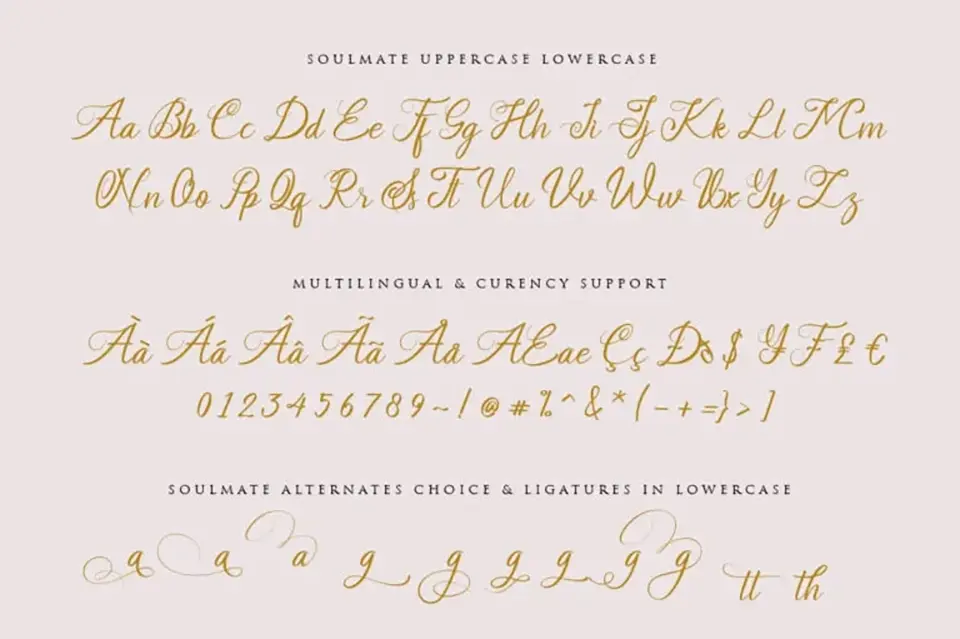 SOULMATE UPPERCASE LOWERCASE
Aa Bb Cc Dd Ee Ff Gg Hh Ii Jj Kk Ll Mm
Nn Oo Pp Qq Rr Ss Tt Uu Vv Ww Xx Yy Zz
MULTILINGUAL & CURENCY SUPPORT
Àà Áá Ââ Ãã Åå AEae Çç Đð $ ¥ ₣ £ €
0123456789~!@#%^&*(-+=}>]
SOULMATE ALTERNATES CHOICE & LIGATURES IN LOWERCASE
a a a g g g g g g tt th